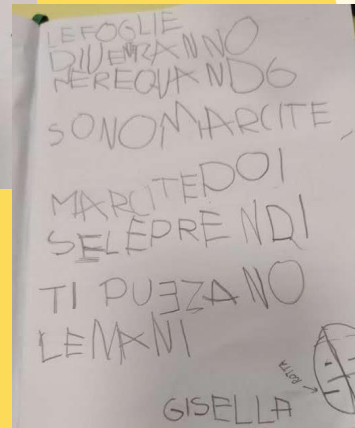 LE FOGLIE
DIVENTANNO
NERE QUANDO
SONO MARCITE,
MARCITE POI
SE LE PRENDI
TI PUZZANO
LE MANI
ROTTA
GISELLA